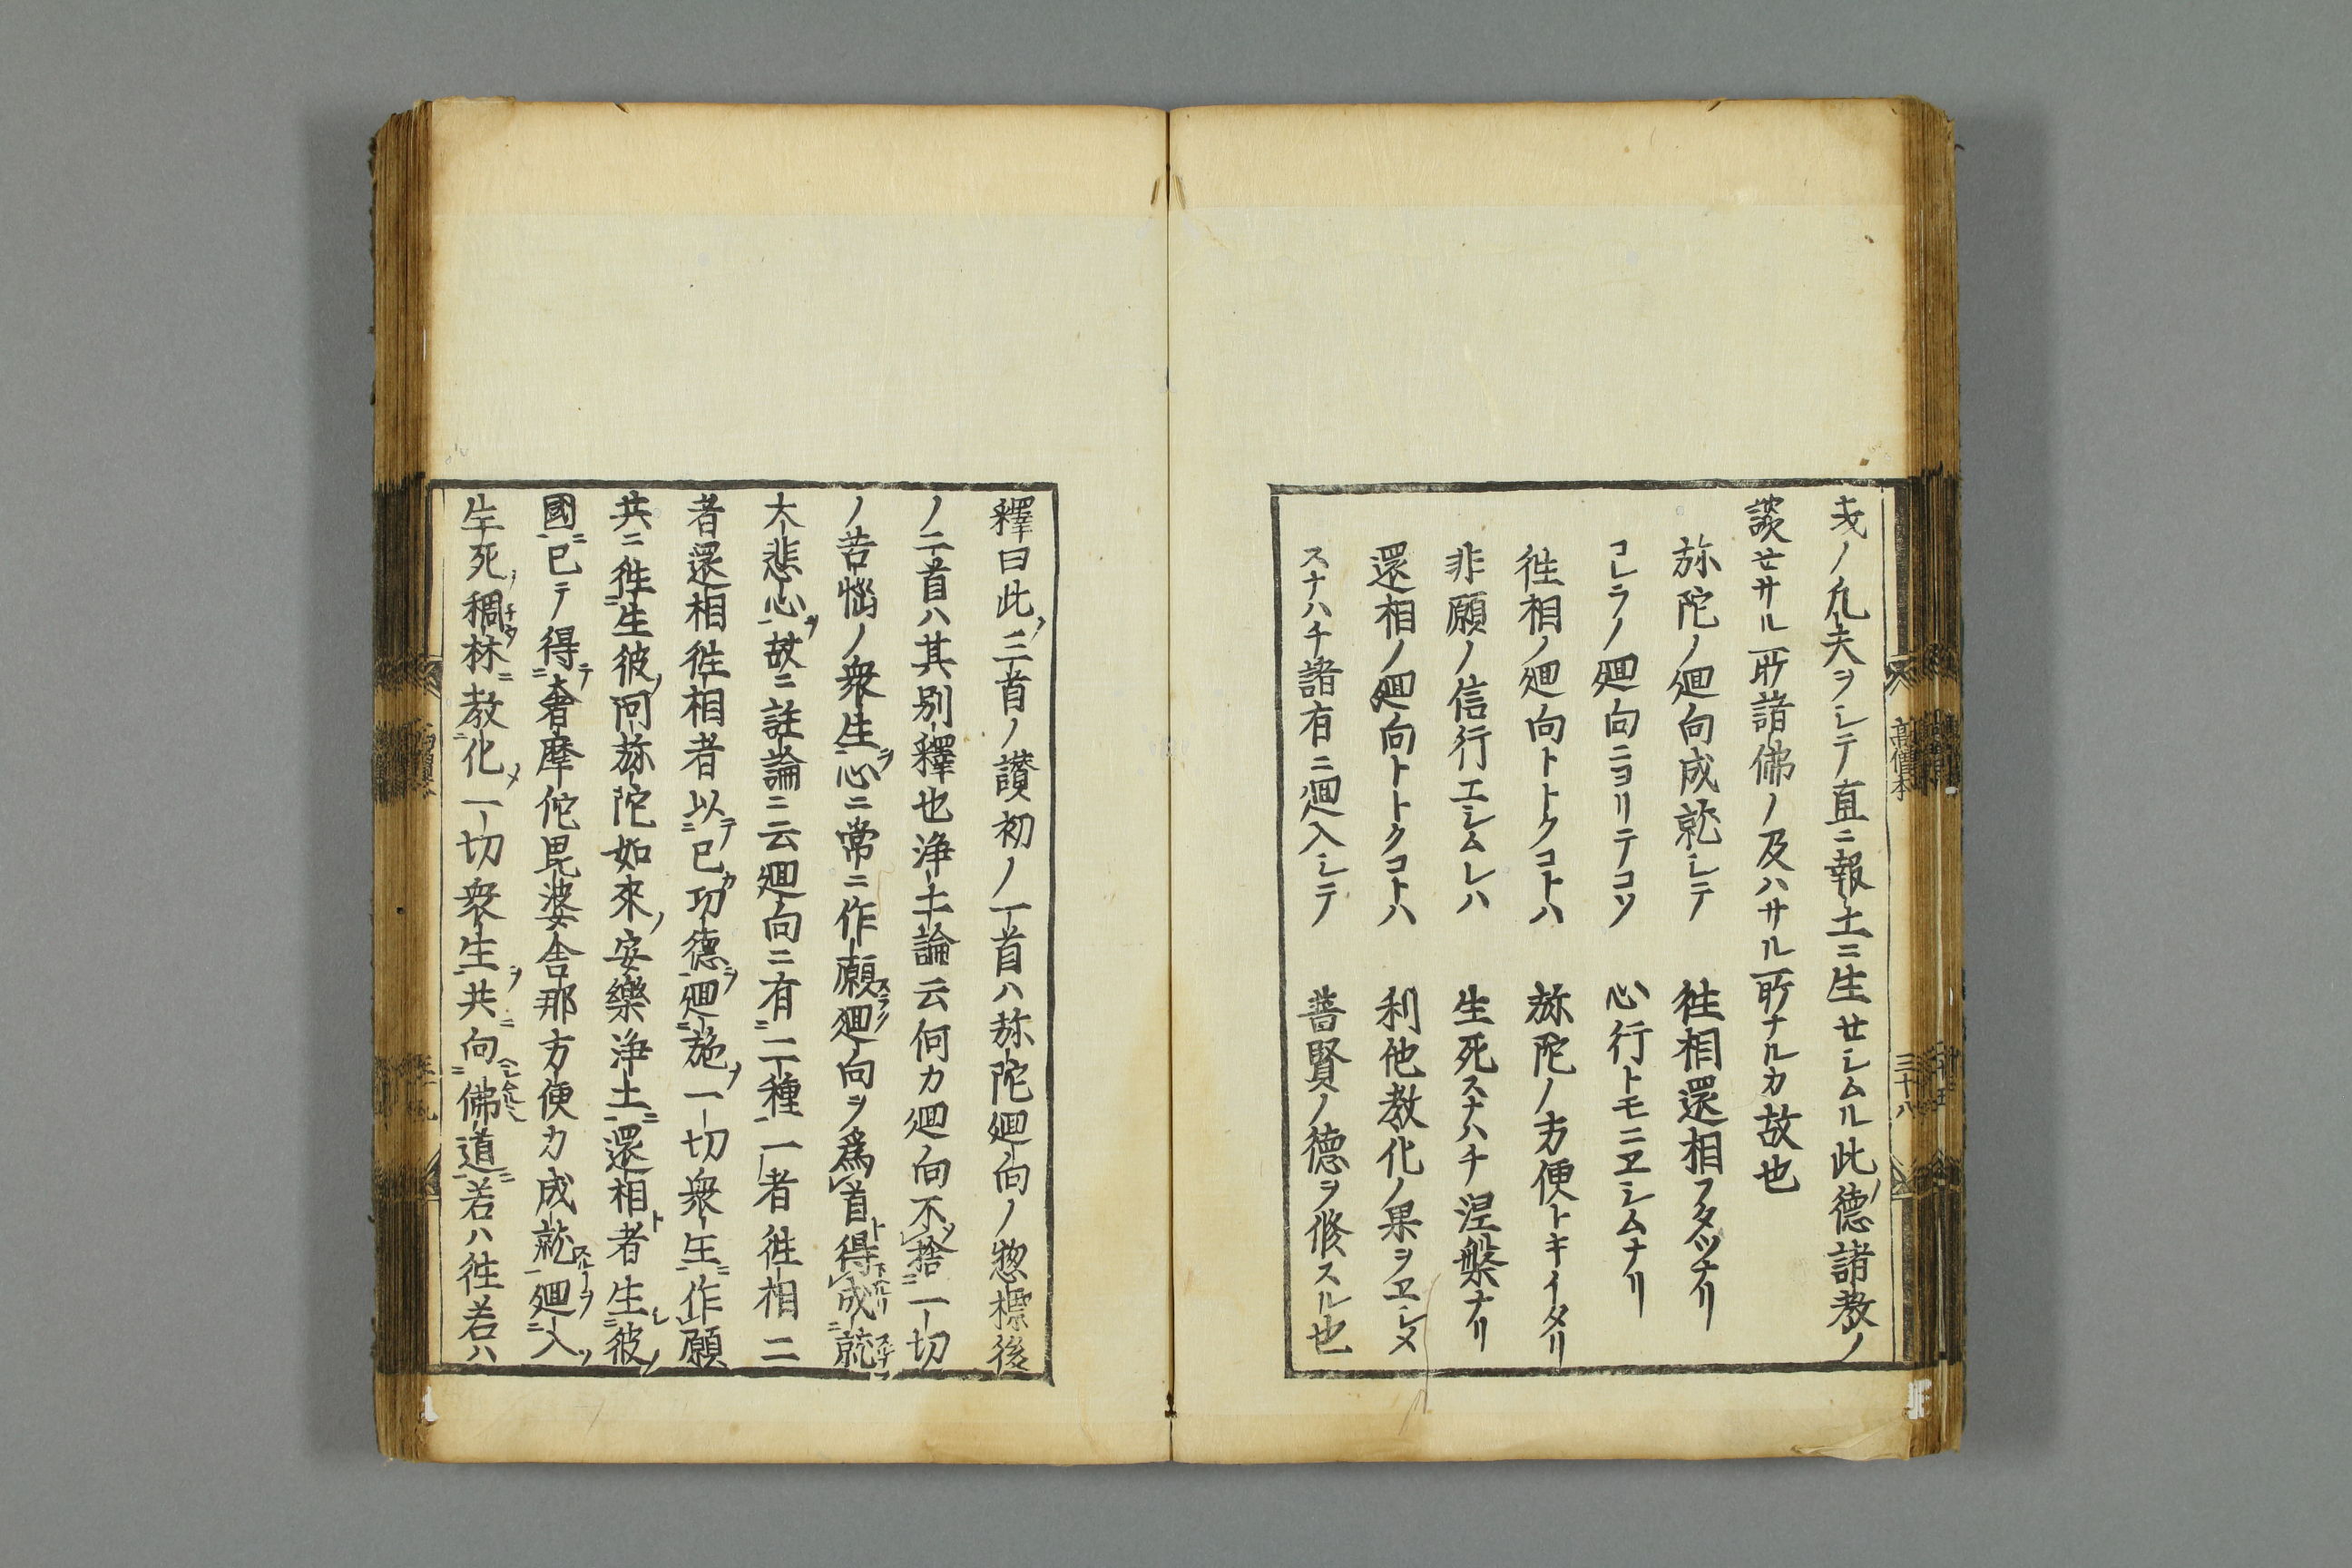 ノ凡夫ヲシテ直ニ報土ニ生セシムル此ノ德諸教ノ
談セサル所諸佛ノ及ハサル所ナルカ故也
弥陀ノ廻向成就シテ　往相還相フタツナリ
コレラノ廻向ニヨリテコソ　心行トモニヱシムナリ
往相ノ廻向トトクコトハ　弥陀ノ方便トキイタリ
悲願ノ信行エシムレハ　生死スナハチ涅槃ナリ
還相ノ廻向トトクコトハ　利他教化ノ果ヲヱシメ
スナハチ諸有ニ廻入シテ　普賢ノ德ヲ修スル也
高僧本
三十八
釋曰此ノ三首ノ讃初ノ一首ハ弥陀廻向ノ惣標後
ノ二首ハ其別釋也浄土論云何カ廻向不捨一切
ノ苦惱ノ衆生ヲ心ニ常ニ作願廻向ヲ爲首得成就
大悲心故ニ註論ニ云廻向ニ有二種一者往相二
者還相往相者以己功德廻施一切衆生作願
共ニ往生彼阿弥陀如來安樂浄土還相者生彼
國已テ得奢摩佗毘婆舍那方便カ成就廻入
生死稠林教化一切衆生共向佛道若ハ往若ハ